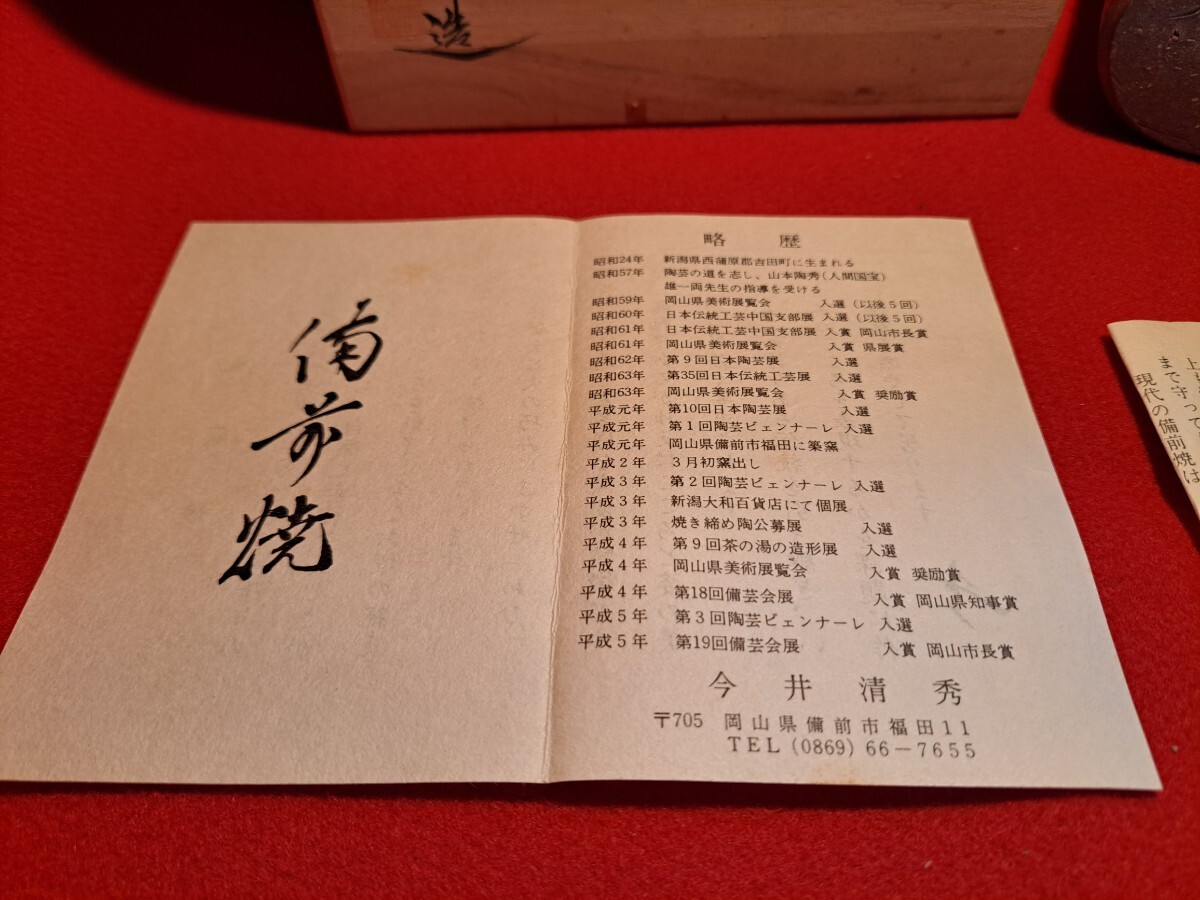 造
備前焼
略歴
昭和24年 新潟県西蒲原郡吉田町に生まれる
昭和57年 陶芸の道を志し、山本陶秀(人間国宝)
雄一両先生の指導を受ける
昭和59年 岡山県美術展覧会 入選(以後5回)
昭和60年 日本伝統工芸中国支部展 入選(以後5回)
昭和61年 日本伝統工芸中国支部展 入賞 岡山市長賞
昭和61年 岡山県美術展覧会 入賞 県展賞
昭和62年 第9回日本陶芸展 入選
昭和63年 第35回日本伝統工芸展 入選
昭和63年 岡山県美術展覧会 入賞 奨励賞
平成元年 第10回日本陶芸展 入選
平成元年 第1回陶芸ビェンナーレ 入選
平成元年 岡山県備前市福田に築窯
平成2年 3月初窯出し
平成3年 第2回陶芸ビェンナーレ 入選
平成3年 新潟大和百貨店にて個展
平成3年 焼き締め陶公募展 入選
平成4年 第9回茶の湯の造形展 入選
平成4年 岡山県美術展覧会 入賞 奨励賞
平成4年 第18回備芸会展 入賞 岡山県知事賞
平成5年 第3回陶芸ビェンナーレ 入選
平成5年 第19回備芸会展 入賞 岡山市長賞
今井清秀
〒705 岡山県備前市福田11
TEL(0869)66-7655
まで守って
現代の備前焼は